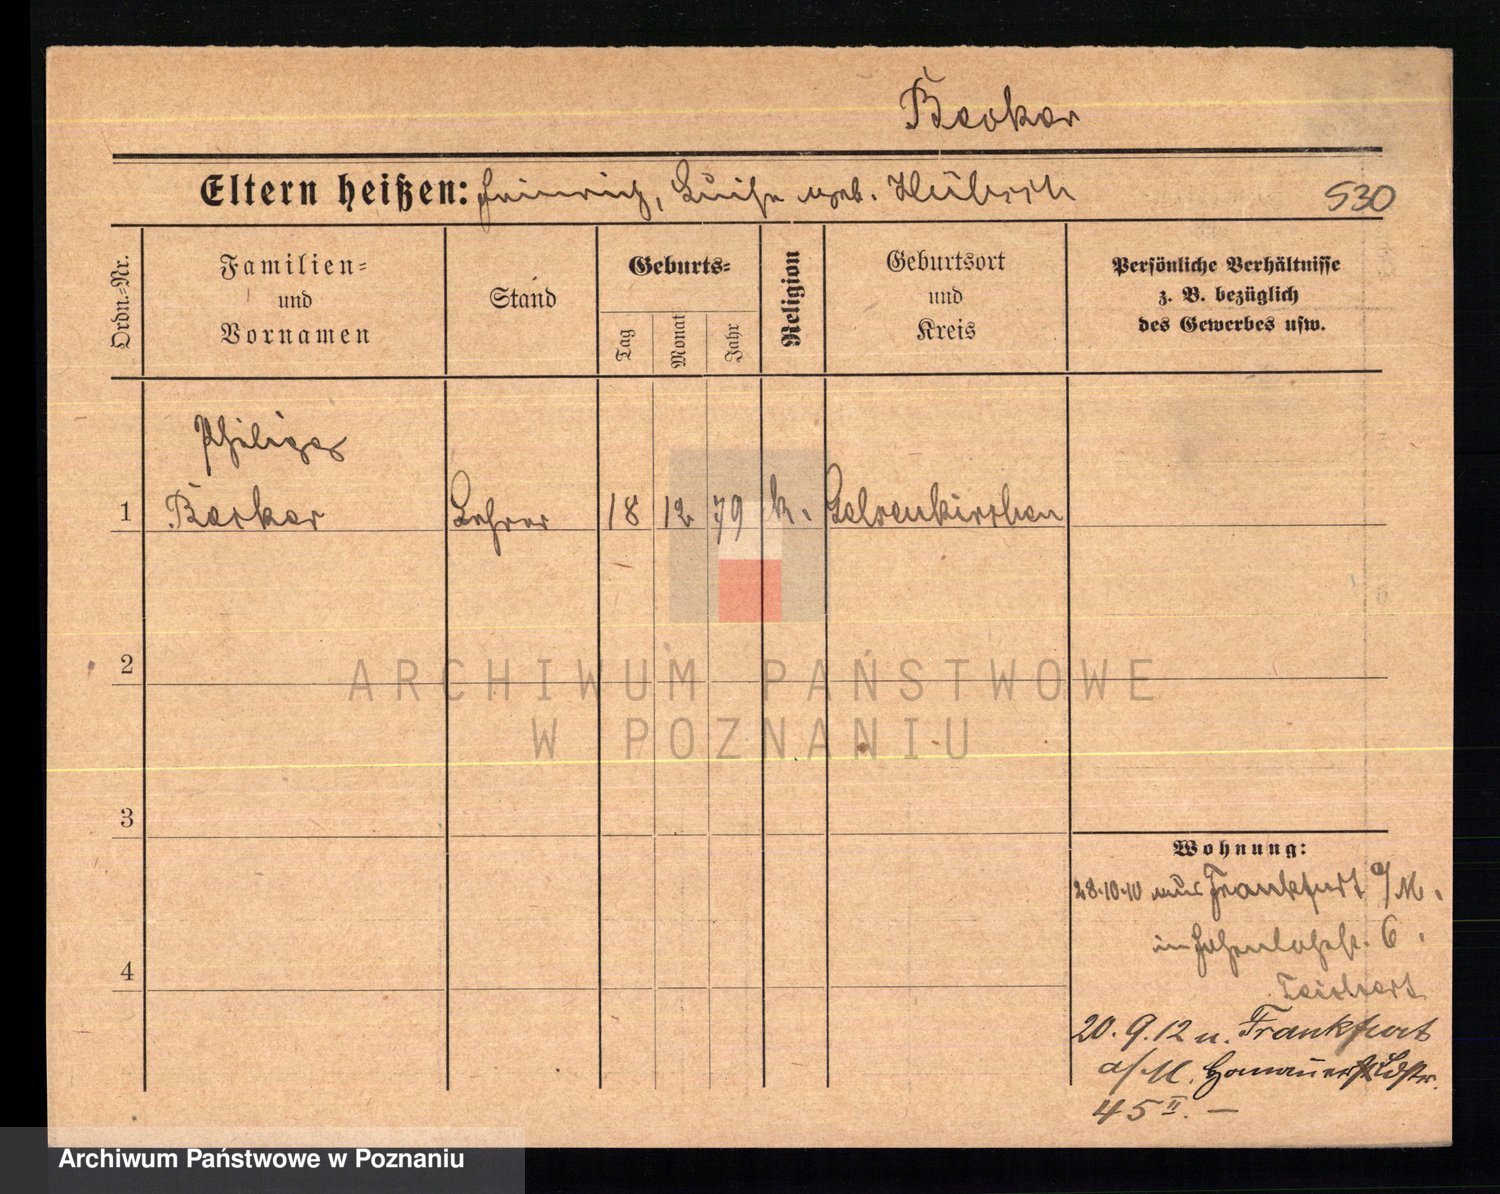 Becker
Eltern heißen: Heinrich, Luise geb. Hübsch
530
Ordn.-Nr.
Familien-
und
Vornamen
Stand
Geburts-
Tag
Monat
Jahr
Religion
Geburtsort
und
Kreis
Persönliche Verhältnisse
z. B. bezüglich
des Gewerbes usw.
Philipp
1 Becker Lehrer 18 12 79 k. Gelsenkirchen
2
3
4
Wohnung:
28.10.10 aus Frankfurt a/M.
in Hohenlohestr. 6.
Teichert
20.9.12 n. Frankfurt
a/M. Hanauer Ldstr.
45 II. —
ARCHIWUM PAŃSTWOWE
W POZNANIU
Archiwum Państwowe w Poznaniu